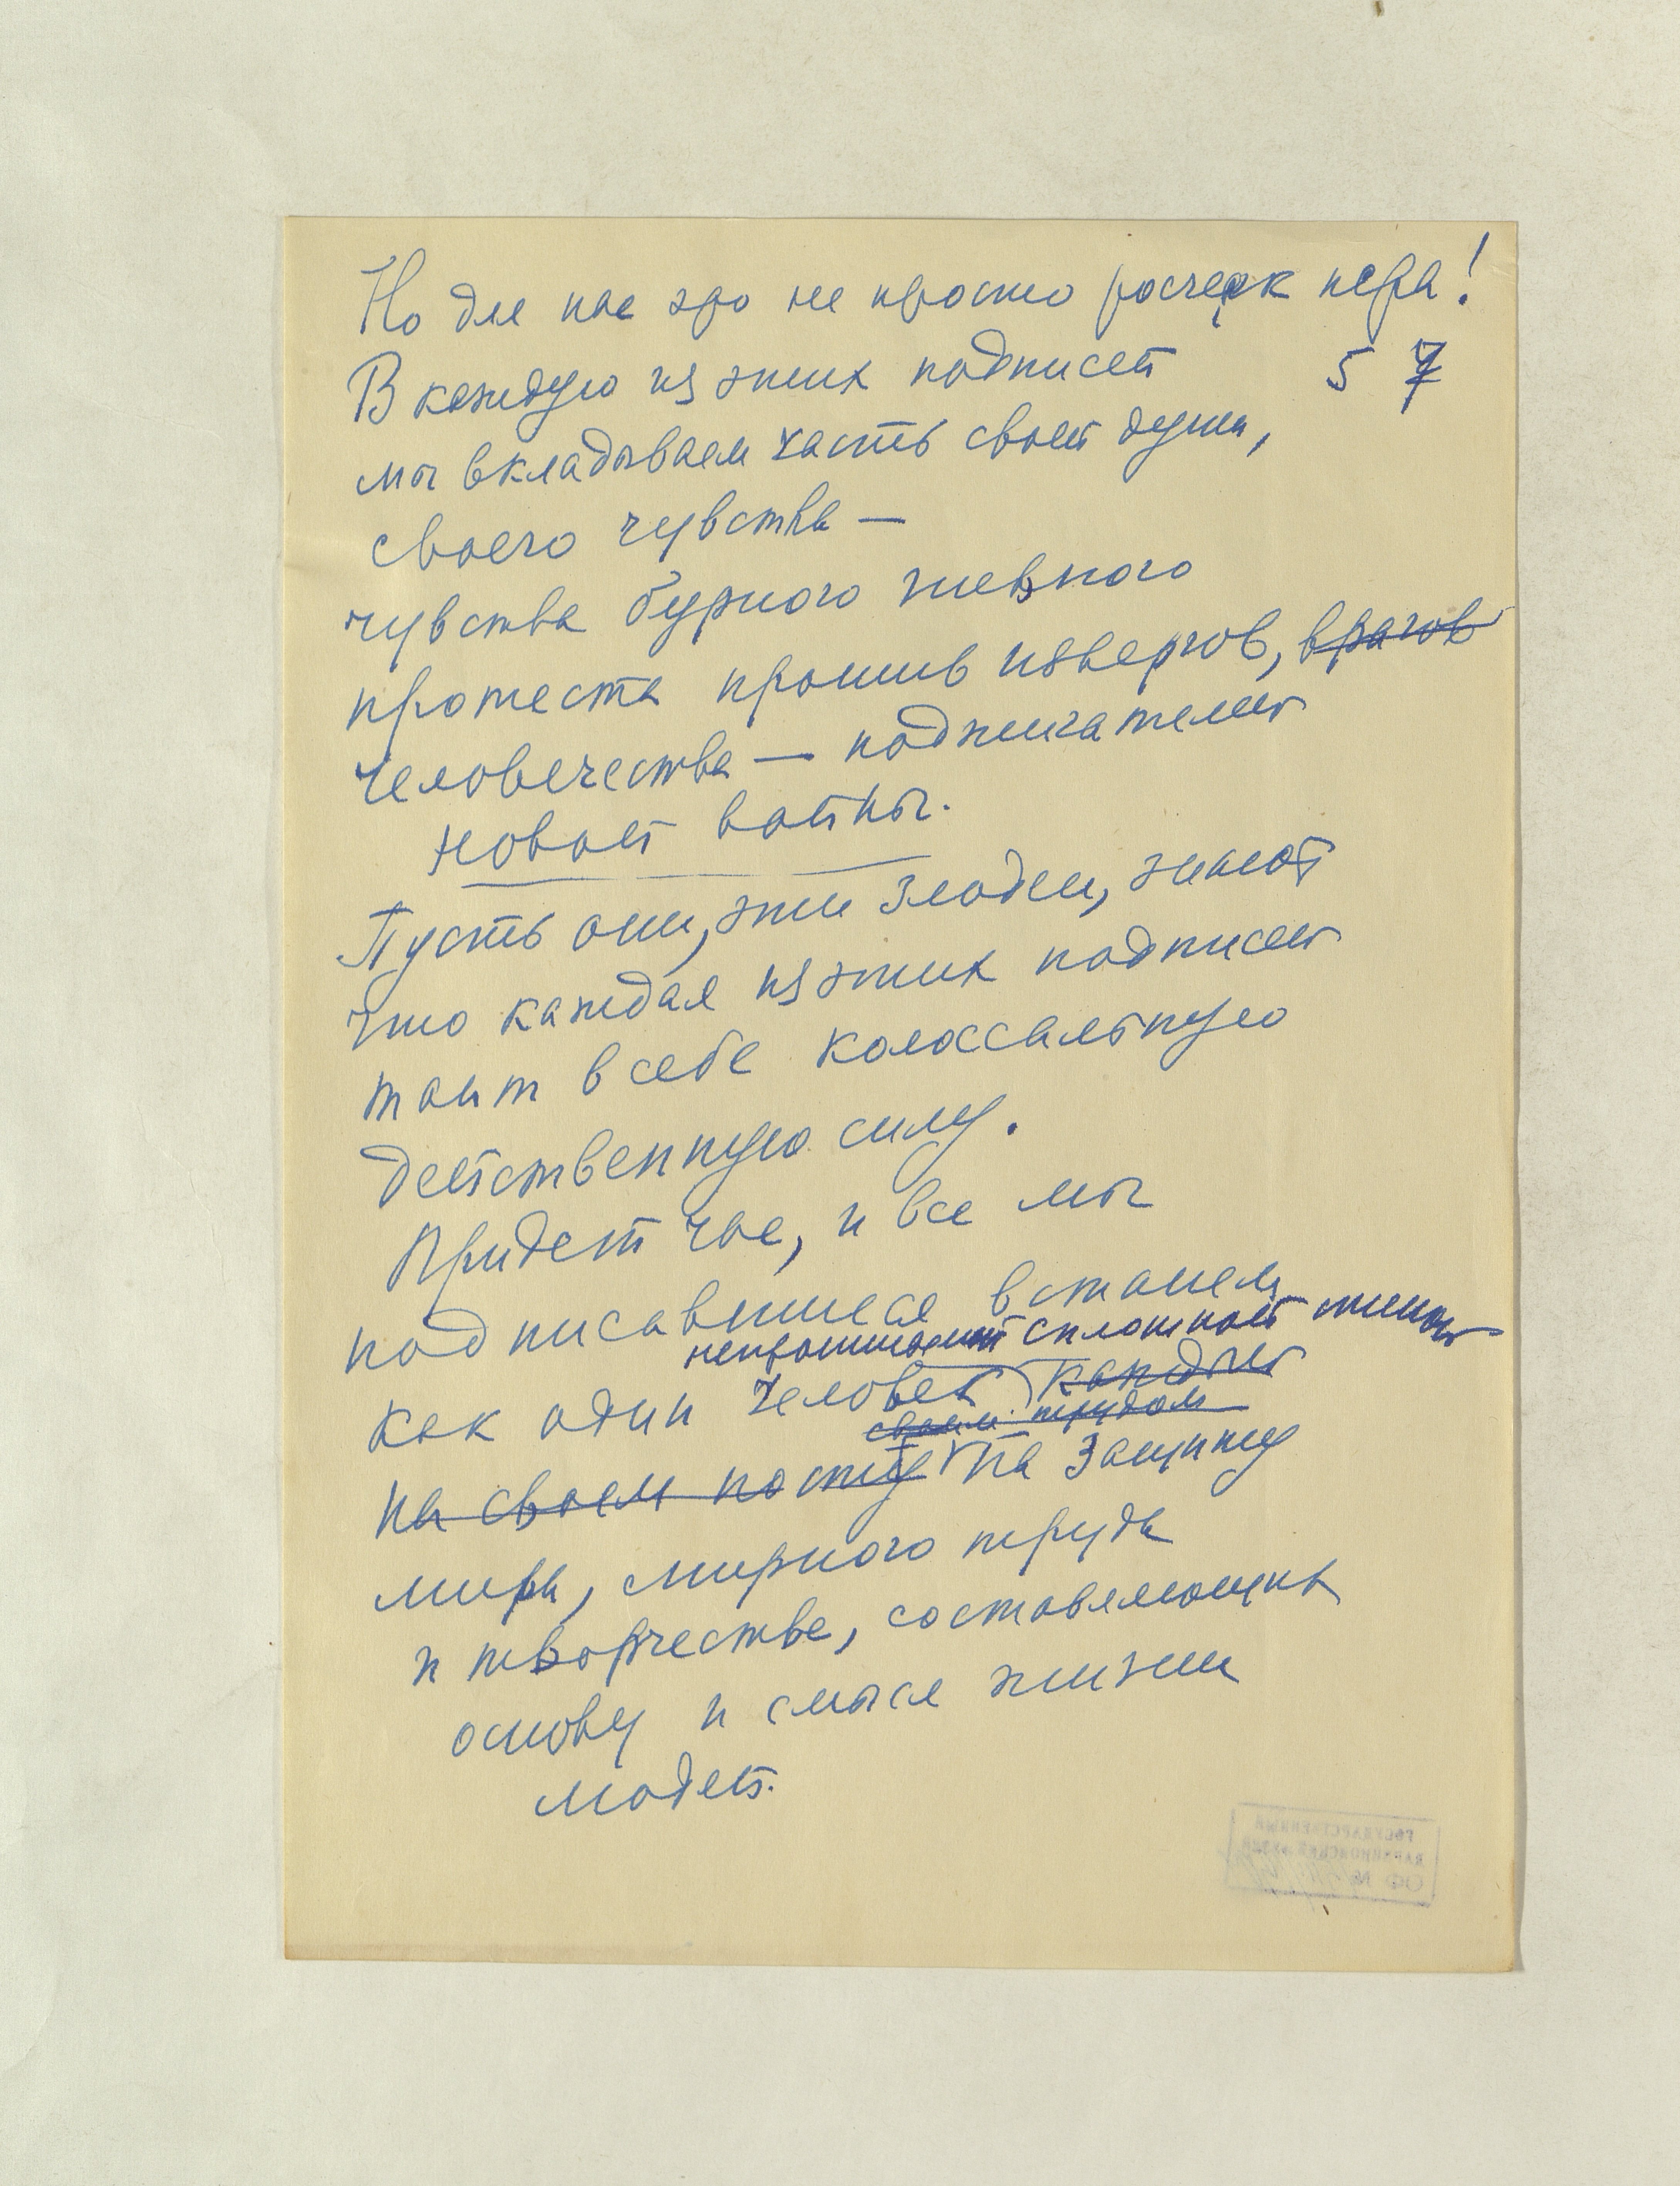 Но для нас это не просто росчерк пера!
5 7
В каждую из этих подписей
мы вкладываем часть своей души,
своего чувства —
чувства бурного гневного
протеста против извергов, врагов
человечества — поджигателей
новой войны.
Пусть они, эти злодеи, знают
что каждая из этих подписей
таит в себе колоссальную
действенную силу.
Придет час, и все мы
подписавшиеся встанем
сплошной стеной
как один человек каждый
своим трудом
на своем посту на защиту
мира, мирного труда
и творчества, составляющих
основу и смысл жизни
людей.
ГОСУДАРСТВЕННЫЙ
ОФ №